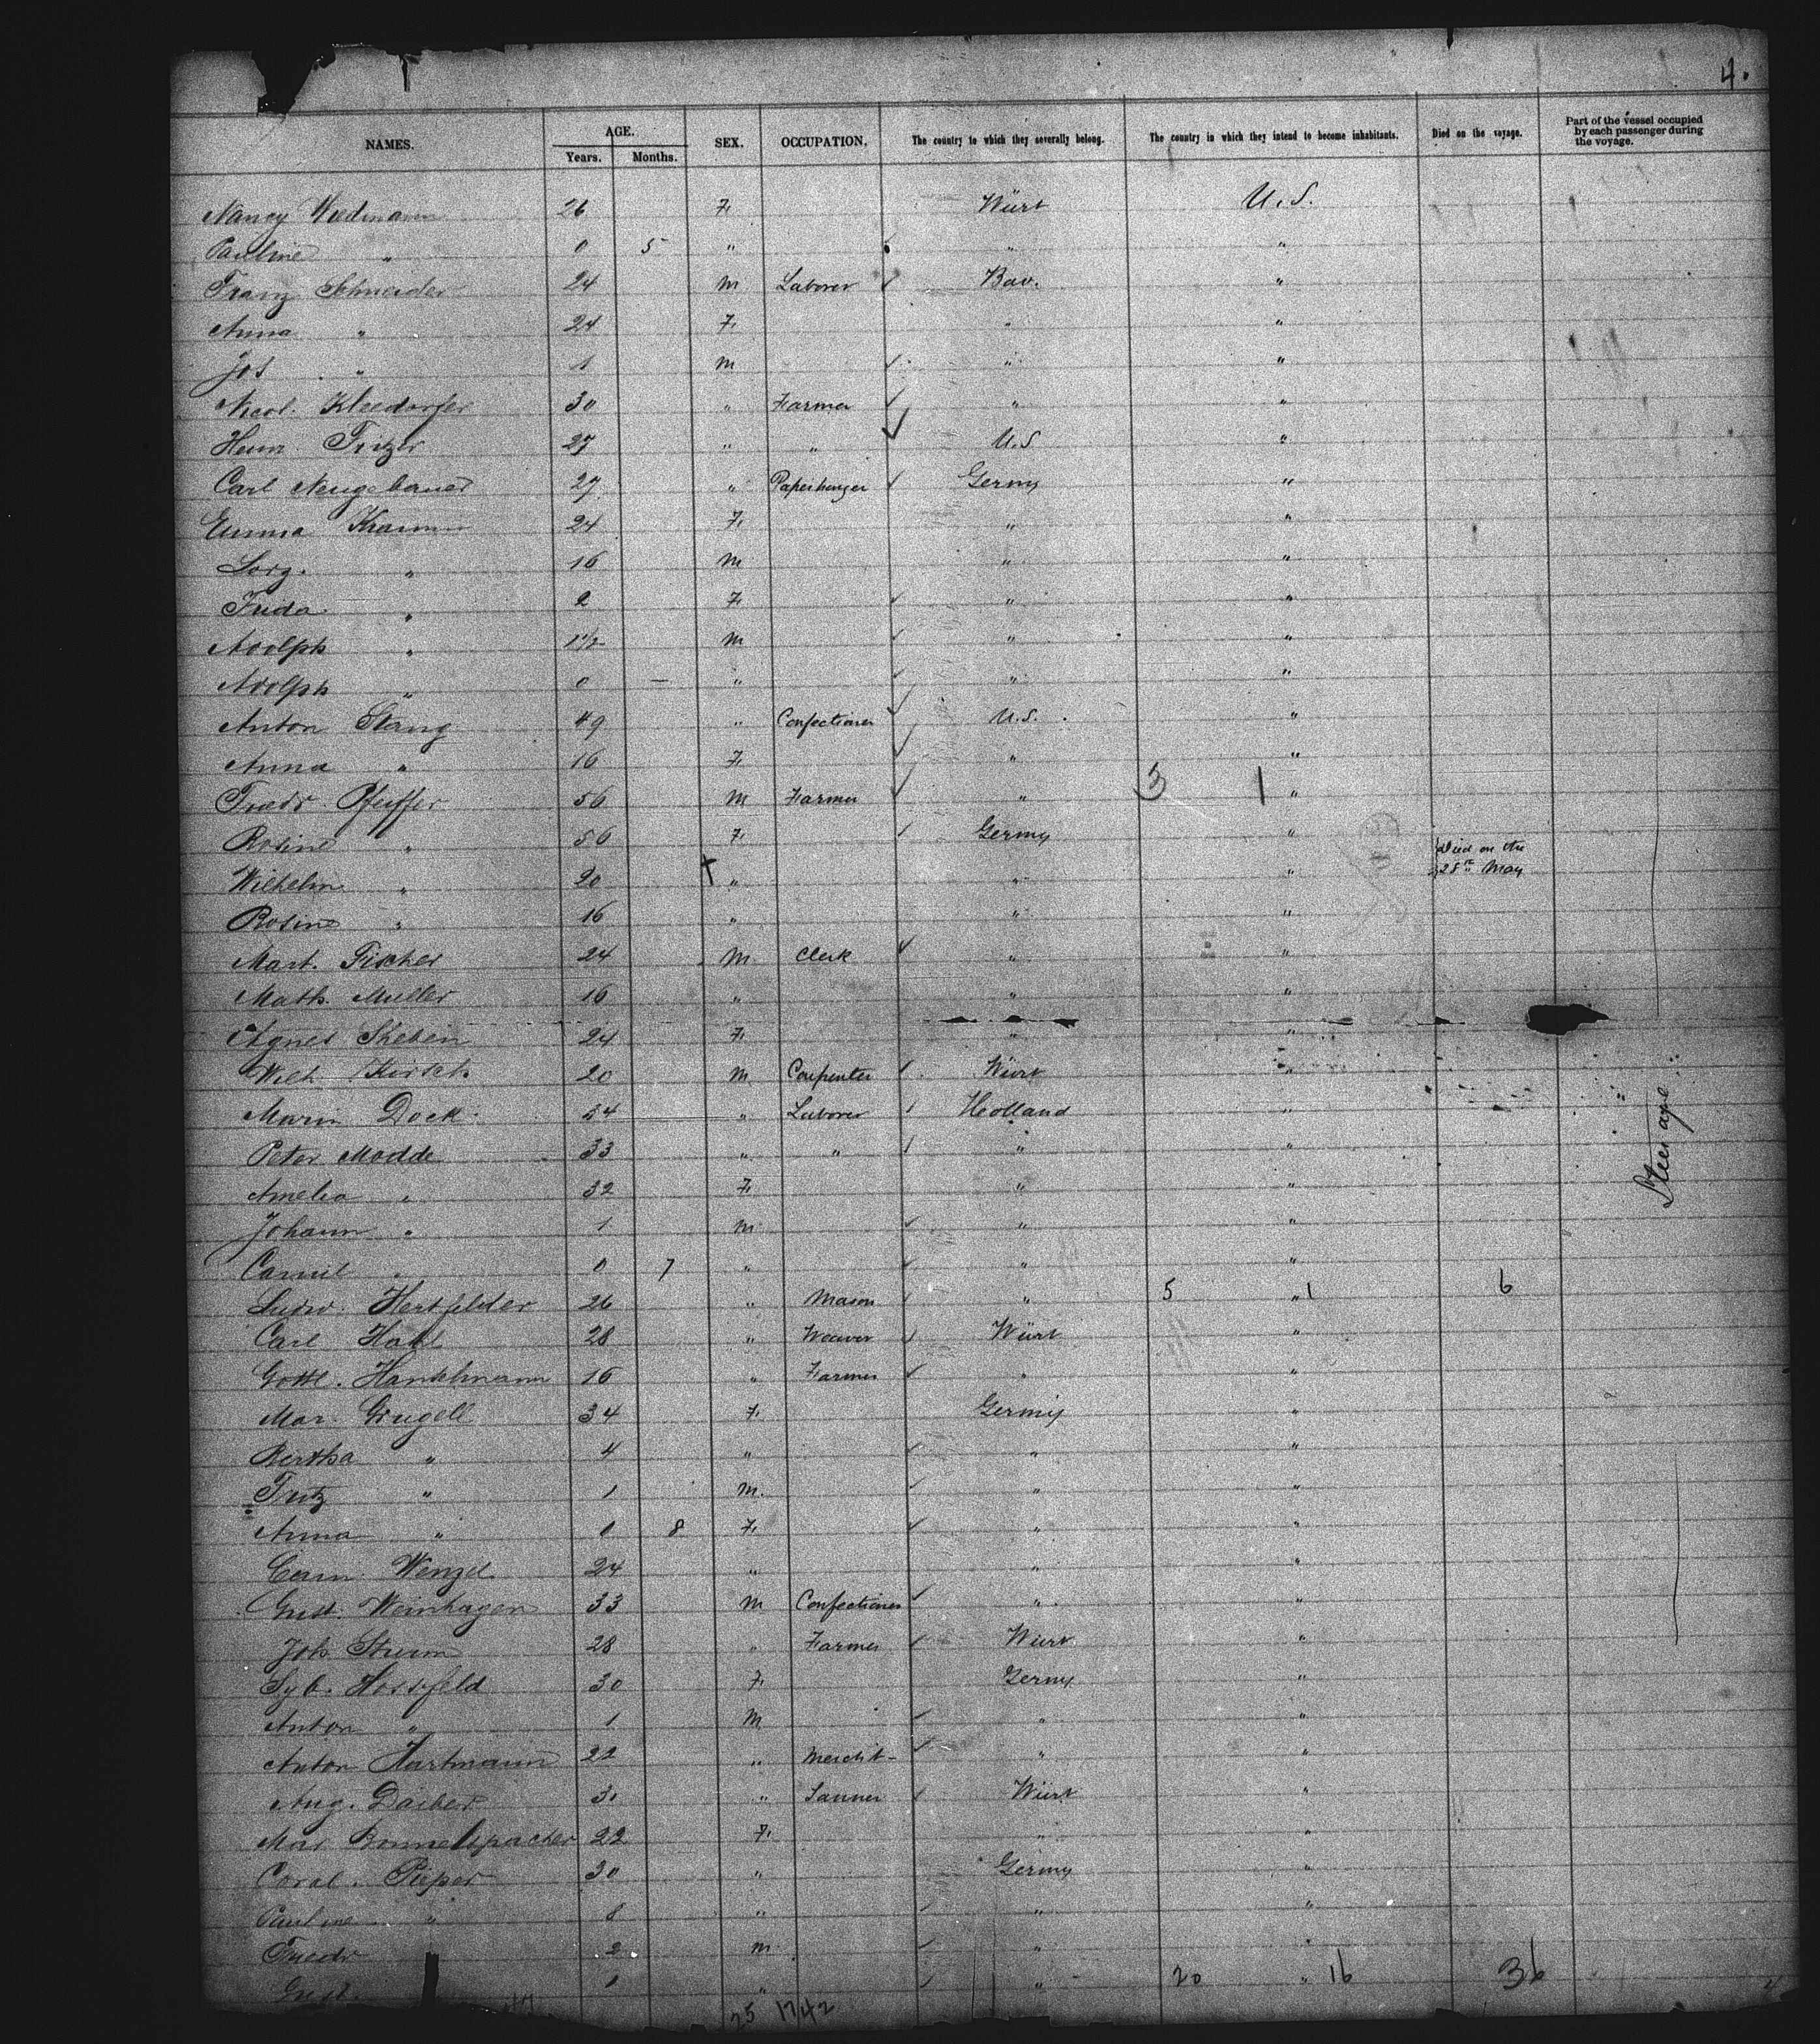 4.
NAMES. AGE. Years. Months. SEX. OCCUPATION. The country to which they severally belong. The country in which they intend to become inhabitants. Died on the voyage. Part of the vessel occupied by each passenger during the voyage.
Nancy Wiedmann 26 F. Würt U.S.
Pauline " 0 5 " " "
Franz Schneider 24 M Laborer Bav. "
Anna " 24 F. " "
Jos " 1 M " "
Nicol. Kleedorfer 30 " Farmer " "
Heinr. 27 " " U.S "
Carl Neugebauer 27 " Paperhanger Germy "
Emma 24 F. " "
" 16 M " "
Frida " 2 F. " "
Adolph " 1 1/2 M " "
Adolph " 0 — " " "
Anton Stang 49 " Confectioner U.S. "
Anna " 16 F. " "
Friedr. Pfeiffer 56 M Farmer " 3 1 "
Rosine " 56 F. Germy "
Wilhelm " 20 + " " " Died on the 28th May
Rosine " 16 " " "
Mart. Fischer 24 M Clerk " "
Math. Muller 16 " " "
Agnes 24 F. " "
Wilh. Kirsch 20 M Carpenter Würt "
Marin Dock 34 " Laborer Holland " "
Peter Modde 33 " " " "
Amelia " 32 F. " " Steerage
Johann " 1 M " "
Camil " 0 7 " " "
Ludw. Hertfelder 26 " Mason " 5 " 1 6
Carl 28 " Weaver Würt "
Gottl. Hanklmann 16 " Farmer " "
Mar. Gingell 34 F. Germy "
Bertha " 4 " " "
Fritz " 1 M. " "
Anna " 0 8 F. " "
Wenzel 24 " " "
Gust. Weinhagen 33 M Confectioner " "
Joh. Sturm 28 " Farmer Würt "
Syb. Hossfeld 30 F. Germy "
Anton " 1 M " "
Anton Hartmann 22 " Mercht " "
Aug. Daiber 31 " Tanner Würt "
Mar. Bommelspacher 22 F. " "
Carol. Pieper 30 " Germy "
Pauline " 8 " " "
Friedr 2 M " "
Gust. 1 " " 20 " 16 36
25 17 42